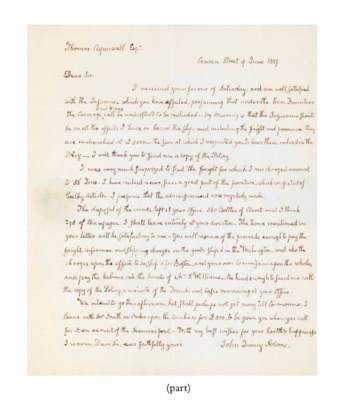 Thomas Aspinwall Esqr.
Craven Street 9 June 1817.
Dear Sir
I received your favour of Saturday, and am well satisfied
with the Insurance which you have effected, presuming that under the term Furniture
and Wine
the Carriage will be understood to be included. My meaning is that the Insurance should
be on all the effects I have on board the ship, and including the freight and premium they
are undervalued at
Policy. I will thank you to send me a copy of the Policy
I was very much surprized to find the freight for which I am charged amount
to 35 Tons. I have indeed never seen a great part of the furniture, which consisted of
bulky articles. I presume that the admeasurement was
The disposal of the wines left at your office, the Bottles of Claret, and I think
298 of Champagne. I shall leave entirely at your discretion. The terms mentioned in
your letter will be satisfactory to me. You will reserve of the proceeds enough to pay the
freight, insurance and shipping charges on the goods shipped in the Washington, and also the
charges upon the effects to be shipped for Boston, and your own commissions upon the whole,
and pay the balance into the hands of Mr S. Williams. Be kind enough to send me with
the copy of the Policy, a minute of the Trunks and Cases remaining at your Office.
We intend to go this afternoon, but shall perhaps not get away till to-morrow. I
leave with Mr Smith, an Order upon the Bankers for £ 200. to be given you when you call
for it on account of the Insurance paid. With my best wishes for your health & happiness
I remain, Dear Sir, ever faithfully yours
John Quincy Adams.
(part)